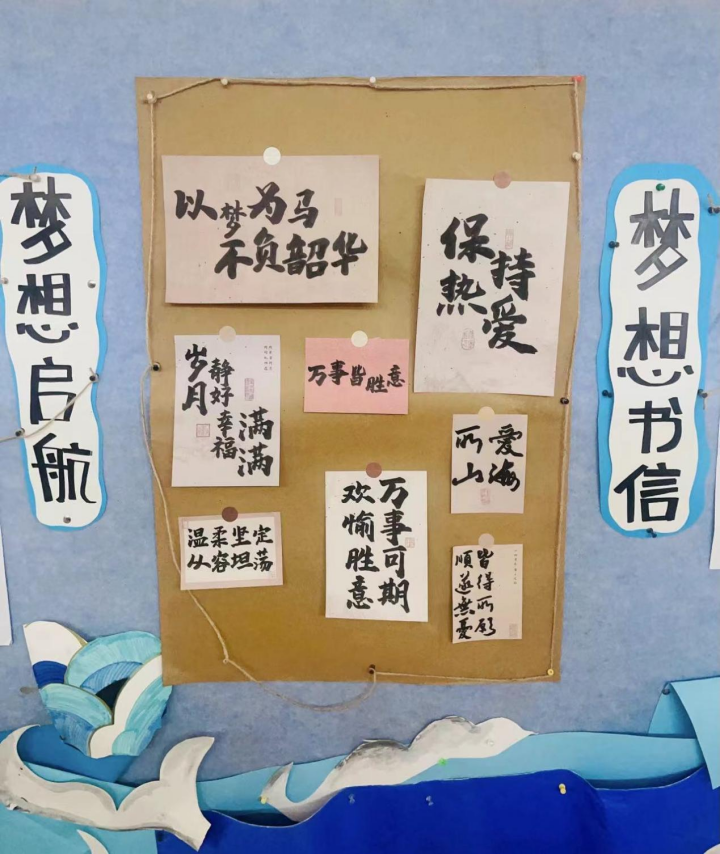 梦想启航
以梦为马
不负韶华
保持
热爱
岁月
静好
幸福
满满
万事皆胜意
爱海
所山
温柔坚定
从容坦荡
万事可期
欢愉胜意
皆得所愿
順遂無憂
梦想书信